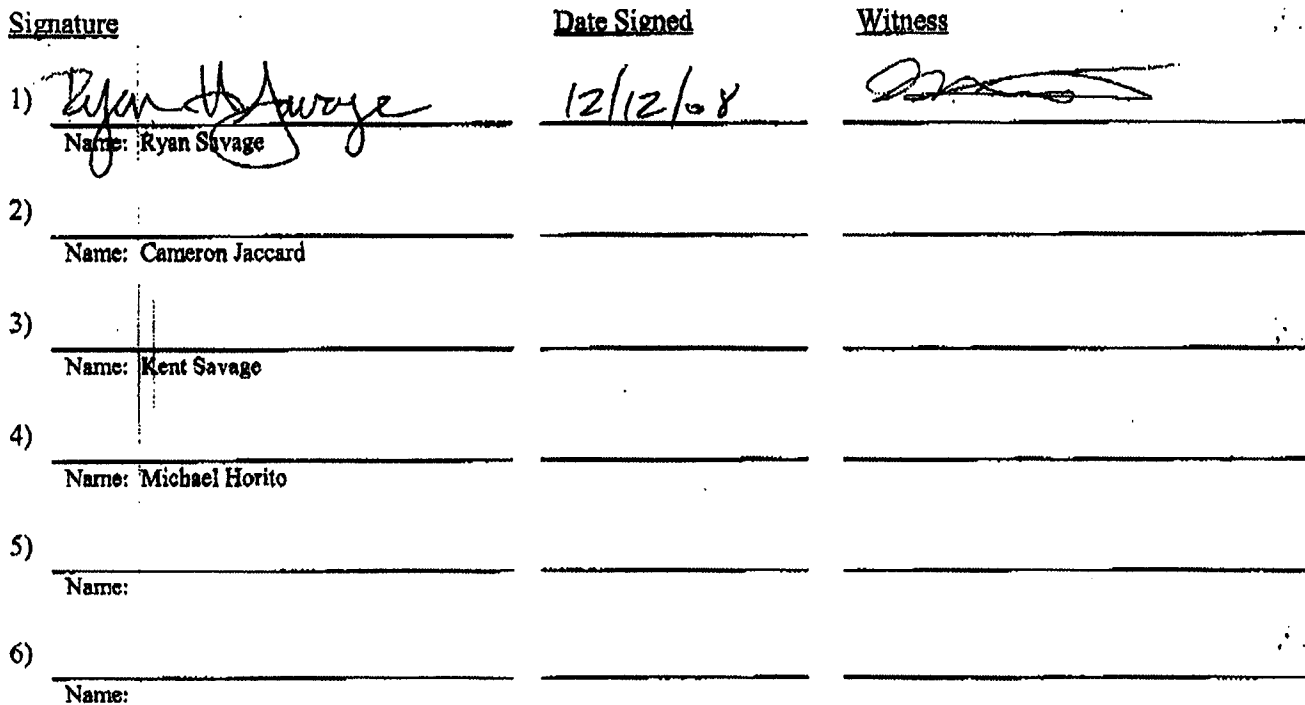 Signature Date Signed Witness
1) Ryan H Savage 12/12/08
Name: Ryan Savage
2)
Name: Cameron Jaccard
3)
Name: Kent Savage
4)
Name: Michael Horito
5)
Name:
6)
Name: